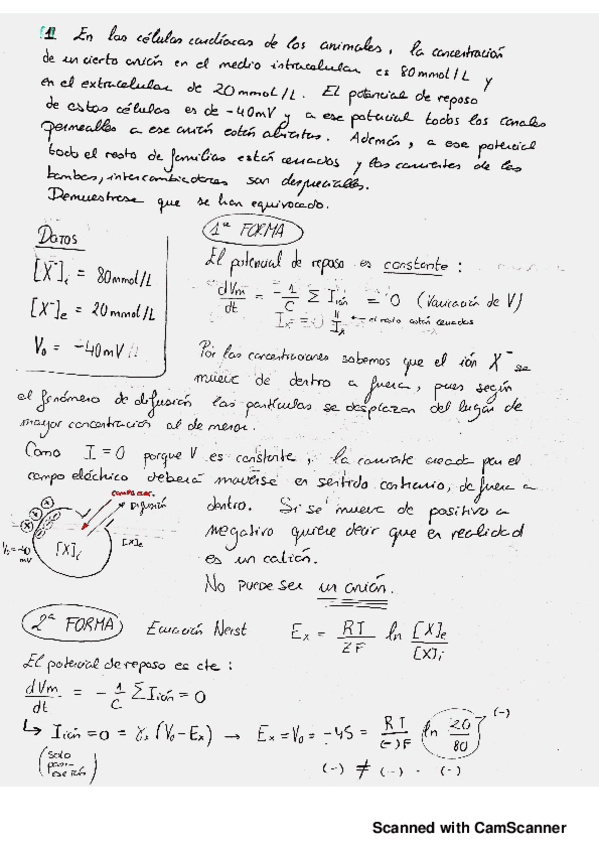 1 En las células cardíacas de los animales, la concentración
de un cierto anión en el medio intracelular es 80mmol/L y
en el extracelular de 20mmol/L. El potencial de reposo
de estas células es de -40mV y a ese potencial todos los canales
permeables a ese anión están abiertos. Además, a ese potencial
todo el resto de familias están cerrados y las corrientes de las
bombas, intercambiadores son despreciables.
Demuestrese que se han equivocado.
DATOS
[X⁻]i = 80mmol/L
[X⁻]e = 20mmol/L
V₀ = -40mV
1ª FORMA
El potencial de reposo es constante:
dVm/dt = -1/C Σ Iión = 0 (Variación de V)
el resto están cerrados
Por las concentraciones sabemos que el ión X⁻ se
mueve de dentro a fuera, pues según
el fenómeno de difusión las partículas se desplazan del lugar de
mayor concentración al de menor.
Como I = 0 porque V es constante, la corriente creada por el
campo eléctrico deberá moverse en sentido contrario, de fuera a
dentro. Si se mueve de positivo a
negativo quiere decir que en realidad
es un catión.
No PUEDE SER un anión.
campo elec.
Difusión
[X]i
[X]e
V₀=-40
mV
2ª FORMA Ecuación Nerst Ex = RT/ZF ln [X]e/[X]i
El potencial de reposo es cte:
dVm/dt = -1/C Σ Iión = 0
↳ Iión = 0 = γx (V₀-Ex) → Ex = V₀ = -45 = RT/(-)F ln 20/80 (-)
(solo
ese ión)
(-) ≠ (-) · (-)
Scanned with CamScanner